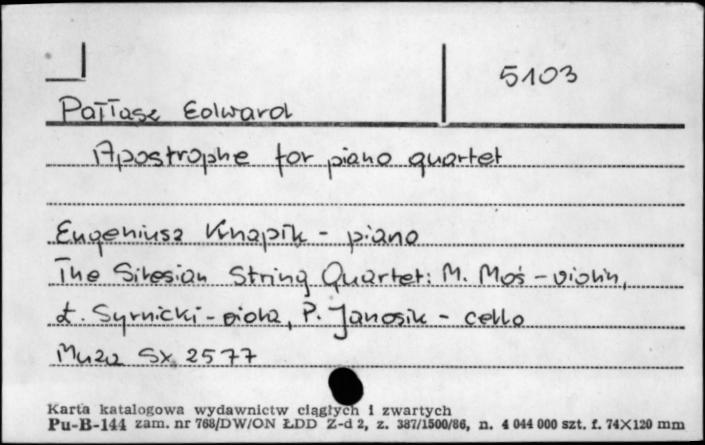 5103
Pałłasz Edward
Apostrophe for piano quartet
Eugeniusz Knapik - piano
The Silesian String Quartet: M. Moś - violin,
Ł. Syrnicki - viola, P. Janosik - cello
Muza Sx 2577
Karta katalogowa wydawnictw ciągłych i zwartych
Pu-B-144 zam. nr 768/DW/ON ŁDD Z-d 2, z. 387/1500/86, n. 4 044 000 szt. f. 74×120 mm